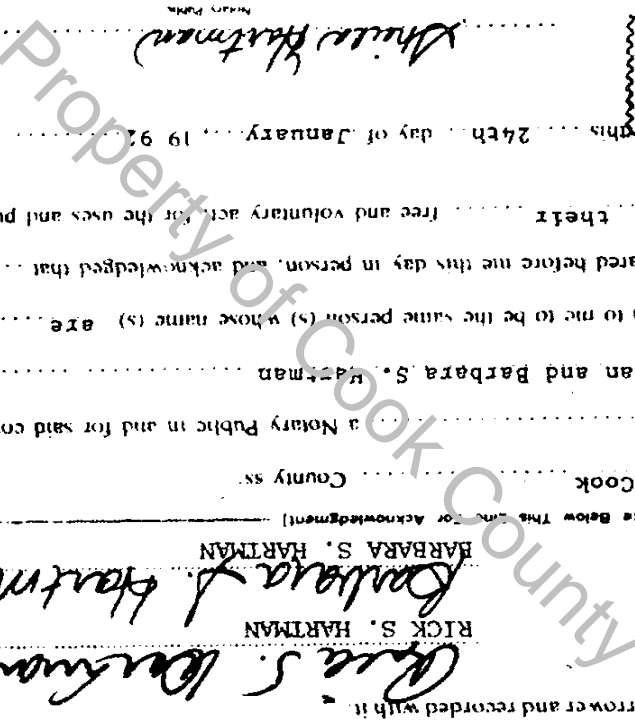 rrower and recorded with it.
Rick S. Hartman
RICK S. HARTMAN
Barbara S. Hartm
BARBARA S. HARTMAN
e Below This Line For Acknowledgment]
Cook County ss:
a Notary Public in and for said co
an and Barbara S. Hartman
to me to be the same person (s) whose name (s) are
ared before me this day in person, and acknowledged that
their free and voluntary act, for the uses and pu
this 24th day of January, 19 92
Sheila Hartman
Notary Public
Property of Cook County